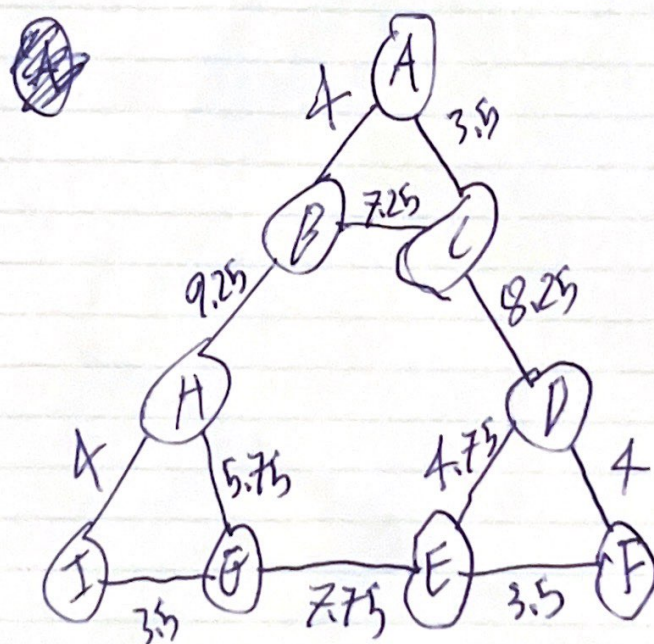 A
4 3.5
B 7.25 C
9.25 8.25
H D
4 5.75 4.75 4
I G E F
3.5 7.75 3.5